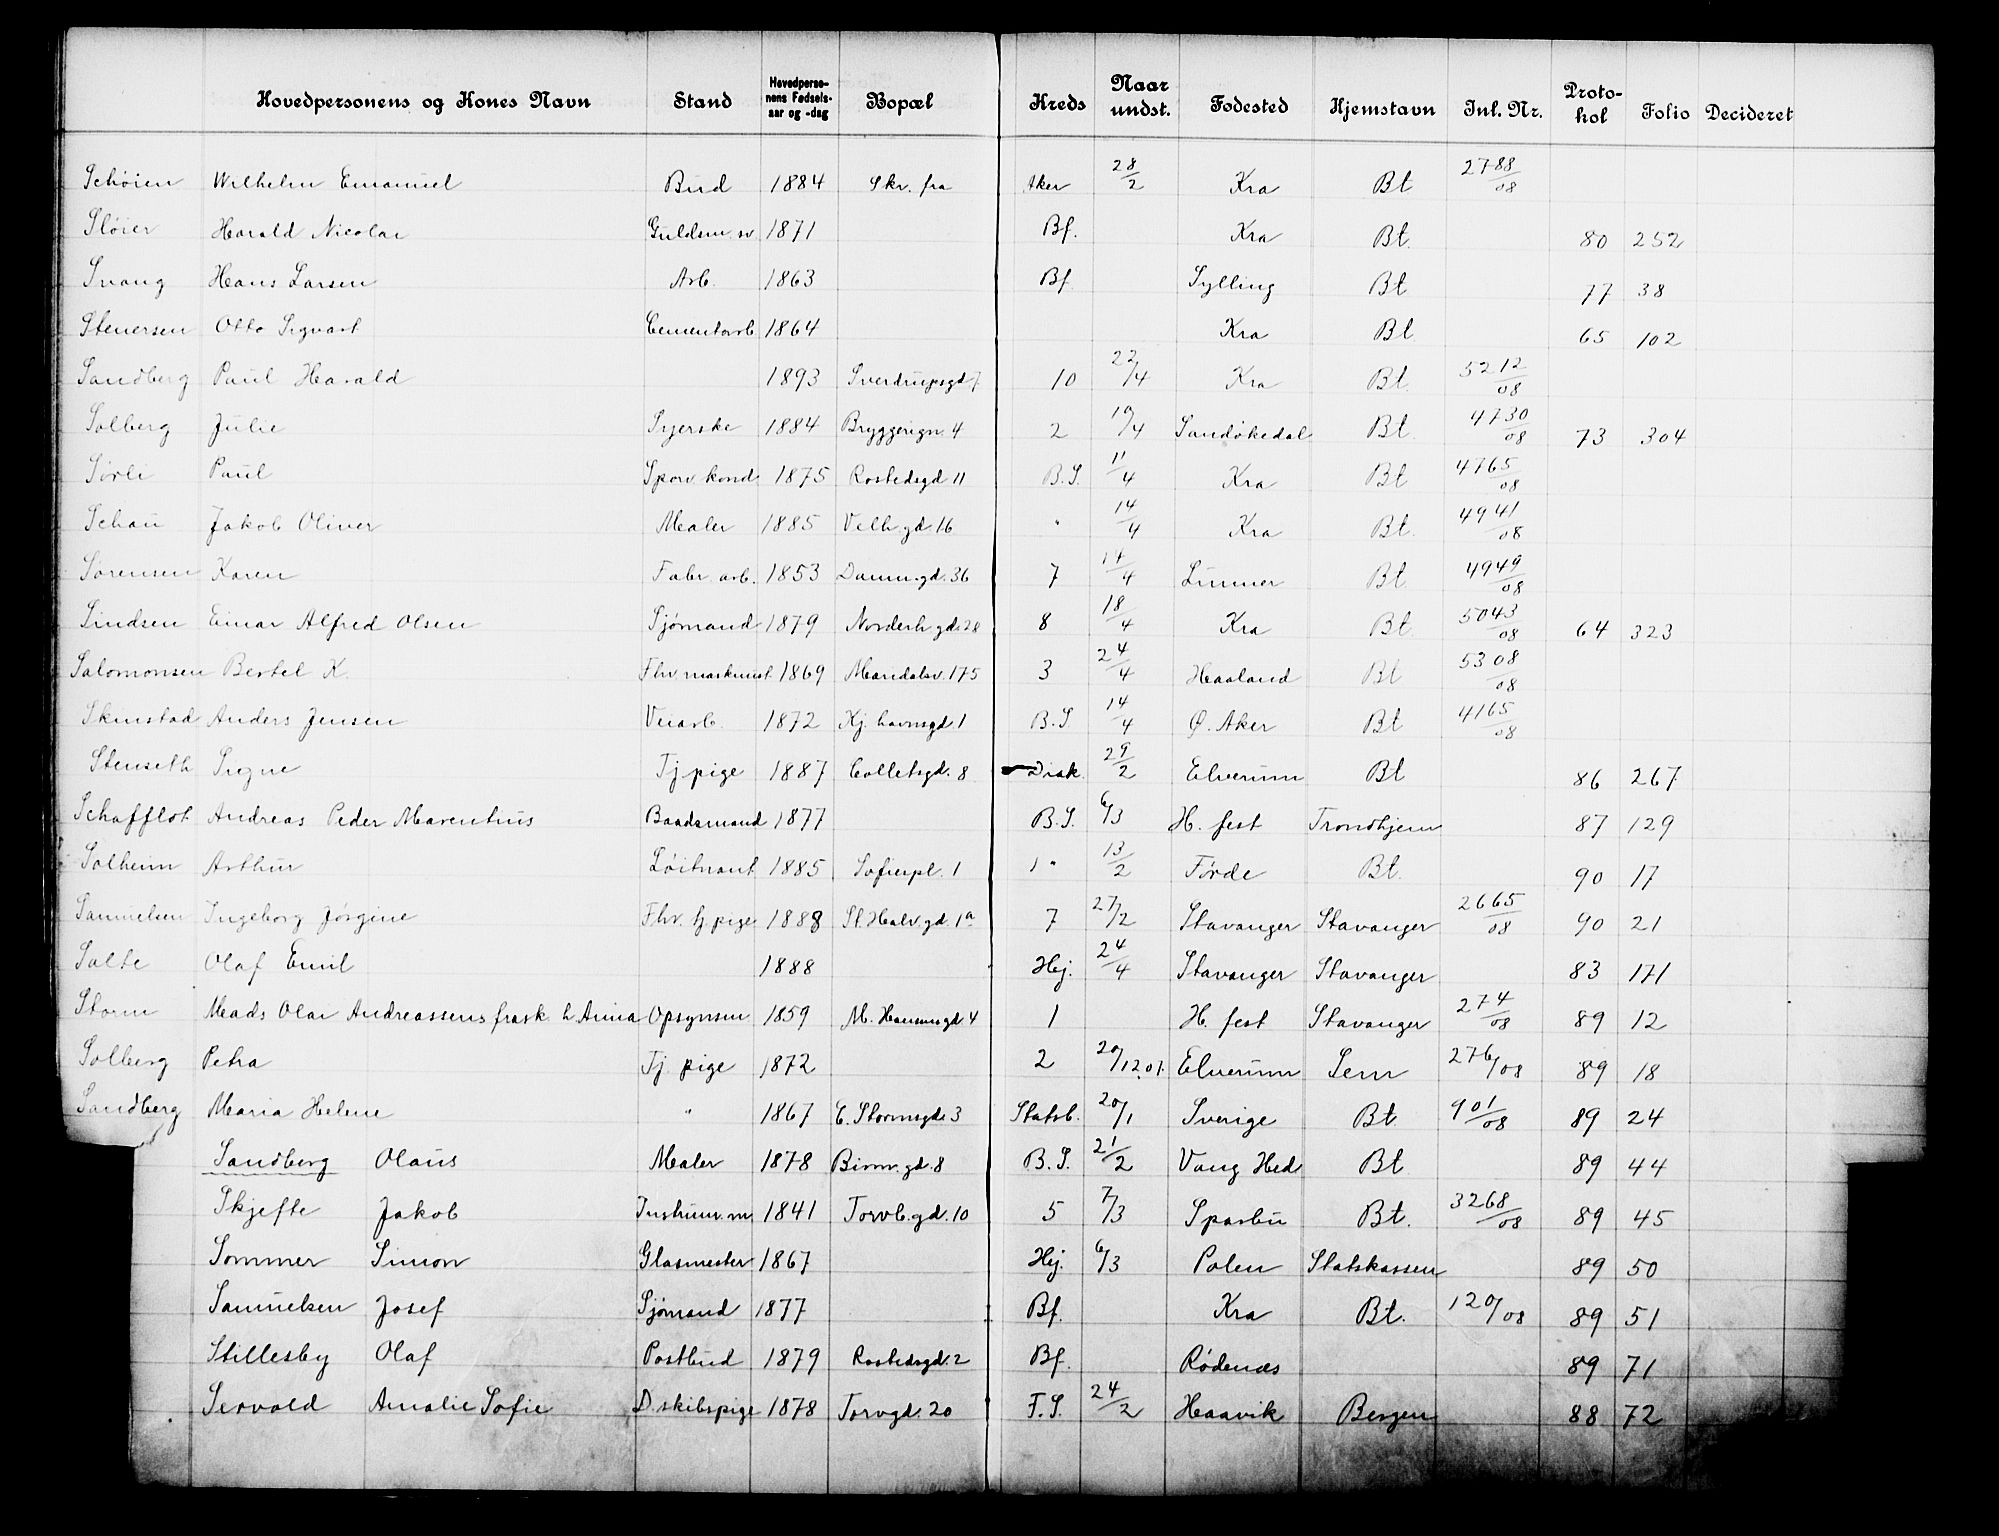 Hovedpersonens og Kones Navn | Stand | Hovedpersonens Fødselsaar og -dag | Bopæl | Kreds | Naar undst. | Fodested | Hjemstavn | Int. Nr. | Protokol | Folio | Decideret
Schøien Wilhelm Emanuel Bud 1884 Skr. fra Aker 28/2 Kra Bt 2788/08
Sløier Harald Nicolai Guldsm. sv. 1871 Bf. Kra Bt. 80 252
Snang Hans Larsen Arb. 1863 Bf Sylling Bt 77 38
Stenersen Otto Sigvart Cementarb 1864 Kra Bt 65 102
Sandberg Paul Harald 1893 Sverdrupsgd 7 10 22/4 Kra Bt. 5212/08
Solberg Julie Syerske 1884 Bryggerign. 4 2 10/4 Sandøkedal Bt. 4730/08 73 304
Sørli Paul Sporv. kond. 1875 Rostedsgd 11 B.S. 11/4 Kra Bt 4765/08
Schau Jakob Oliver Maler 1885 Velh. gd. 16 " 14/4 Kra Bt. 4941/08
Sørensen Karen Fabr. arb. 1853 Damm. gd. 36 7 14/4 Lunner Bt. 4949/08
Sindsen Einar Alfred Olsen Sjømand 1879 Norderh. gd. 28 8 18/4 Kra Bt. 5043/08 64 323
Salomonsen Bertel K. Fhv. maskinist 1869 Maridalsv. 175 3 24/4 Haaland Bt 5308/08
Skinstad Anders Jensen Veiarb. 1872 Kj. havnsgd. 1 B.S. 14/4 Ø. Aker Bt 4165/08
Stenseth Signe Tj. pige 1887 Colletsgd. 8 Diak. 29/2 Elverum Bt 86 267
Schafflot Andreas Peder Marentius Baadsmand 1877 B.S. 6/3 H. fest Trondhjem 87 129
Solheim Arthur Løitnant 1885 Sofiespl. 1 1 " 13/2 Førde Bt. 90 17
Samuelsen Ingeborg Jørgine Fhv. tj. pige 1888 St. Halv. gd. 1a 7 27/2 Stavanger Stavanger 2665/08 90 21
Salte Olaf Emil 1888 Hej. 24/4 Stavanger Stavanger 83 171
Storm Mads Olai Andreassens frask. h. Anna Opsynsm 1859 M. Hansensgd. 4 1 H. fest Stavanger 274/08 89 12
Solberg Petra Tj. pige 1872 2 20/12.07. Elverum Sem 276/08 89 18
Sandberg Maria Helene " 1867 C. Stormsgd. 3 Statsb. 20/1 Sverige Bt. 901/08 89 24
Sandberg Olaus Maler 1878 Birnv. gd. 8 B.S. 21/2 Vang Hed. Bt 89 44
Skjefte Jakob Instrum. m 1841 Torvb. gd. 10 5 7/3 Sparbu Bt. 3268/08 89 45
Sommer Simon Glasmester 1867 Hej. 6/3 Polen Statskassen 89 50
Samuelsen Josef Sjømand 1877 Bf. Kra Bt. 120/08 89 51
Stillesby Olaf Postbud 1879 Rostedsgd. 2 Bf. Rødenæs 89 71
Servold Amalie Sofie D. skibspige 1878 Torvgd. 20 F.S. 24/2 Haavik Bergen 88 72